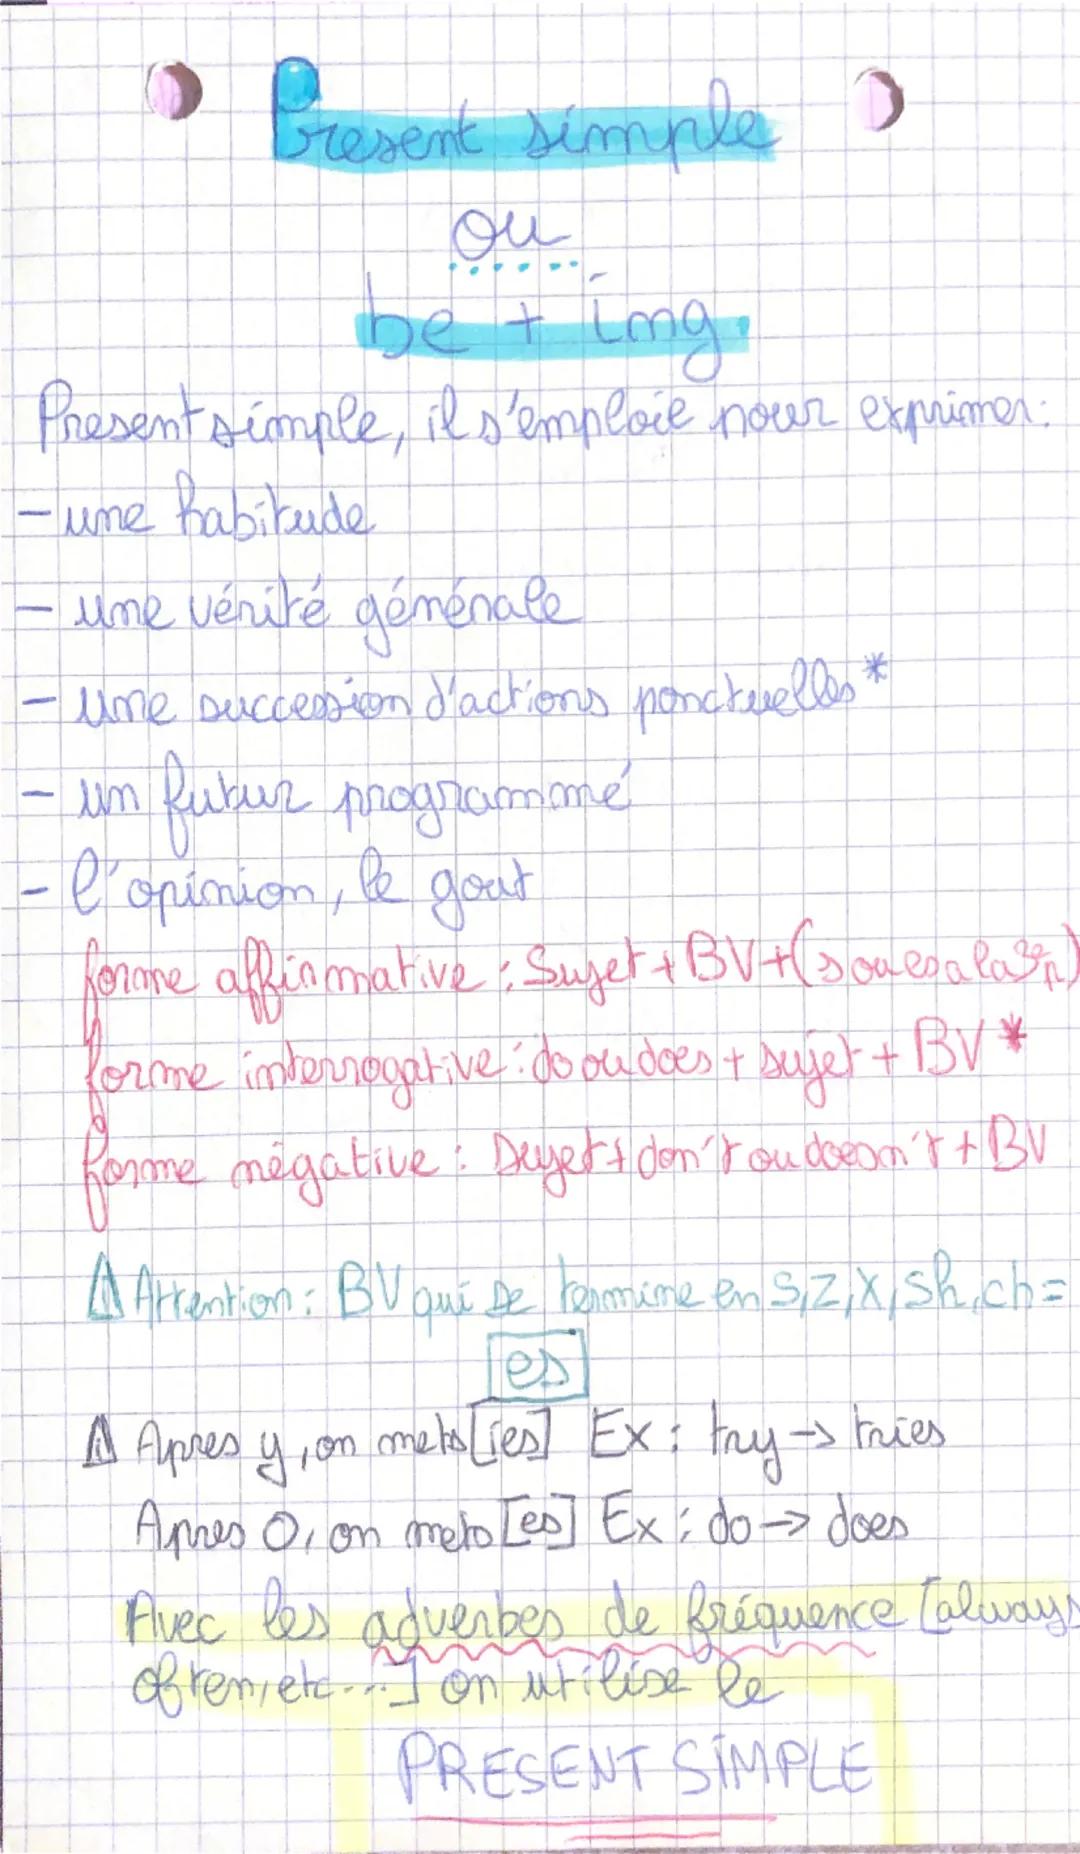 Present simple
ou
be + ing
Present simple, il s'emploie pour exprimer:
- une habitude
- une vérité générale
- une succession d'actions ponctuelles *
- un futur programmé
- l'opinion, le gout
forme affirmative : Sujet + BV + (s ou es a la 3e p)
forme interrogative : do ou does + sujet + BV *
forme négative : Sujet + don't ou doesn't + BV
⚠ Attention : BV qui se termine en s, z, x, sh, ch =
es
⚠ Apres y, on mets [ies] Ex : try → tries
Apres O, on mets [es] Ex : do → does
Avec les adverbes de fréquence [always
often, etc...] on utilise le
PRESENT SIMPLE